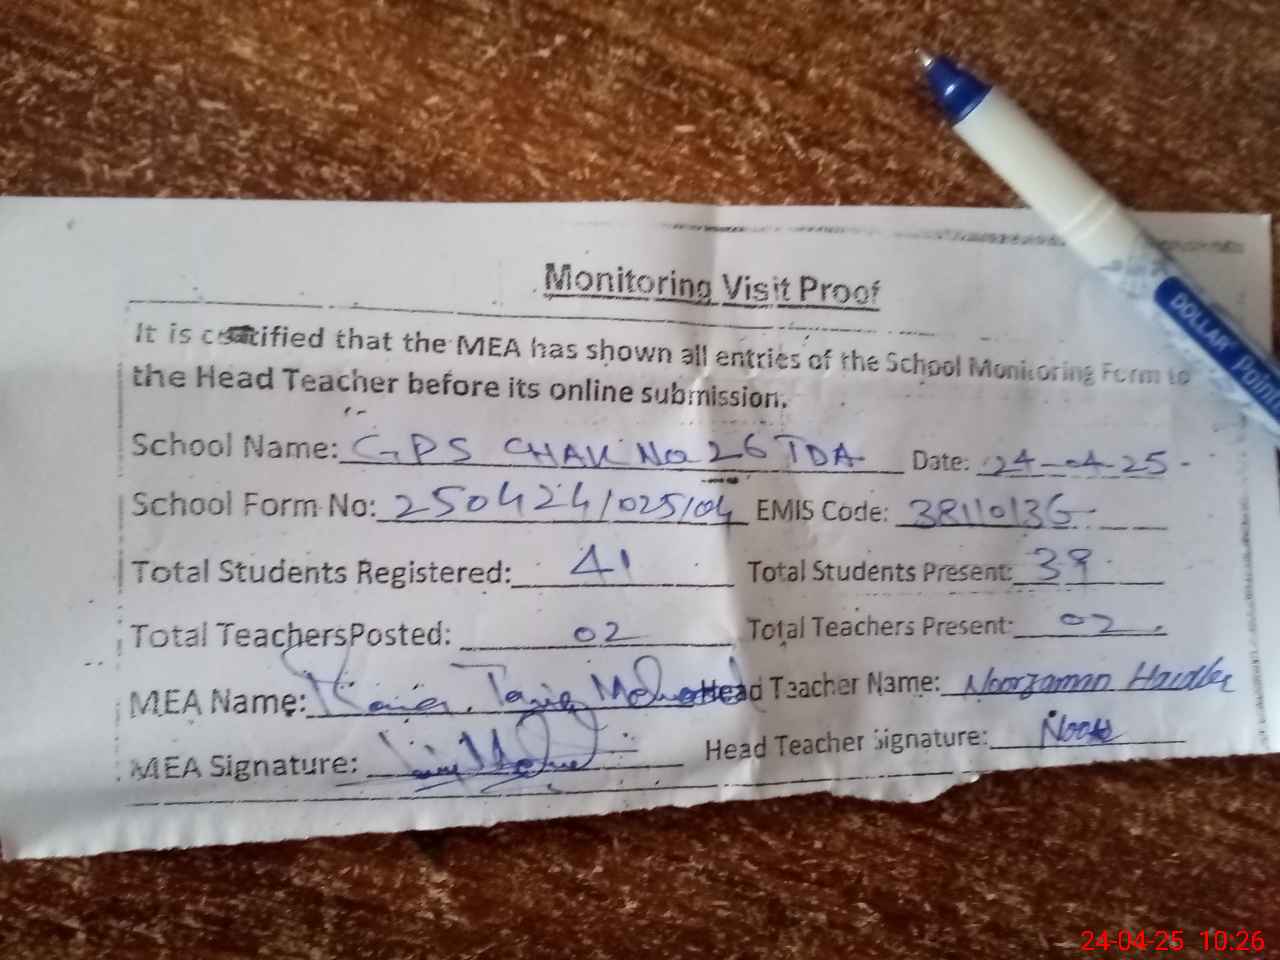 Monitoring Visit Proof
It is certified that the MEA has shown all entries of the School Monitoring Form to
the Head Teacher before its online submission.
School Name: GPS CHAK No 26 TDA Date: 24-04-25
School Form No: 250424/025/04 EMIS Code: 38110136
Total Students Registered: 41 Total Students Present: 39
Total TeachersPosted: 02 Total Teachers Present: 02
MEA Name: Tariq Head Teacher Name: Noorzaman
MEA Signature: Head Teacher Signature: Noor
DOLLAR Point
24-04-25 10:26